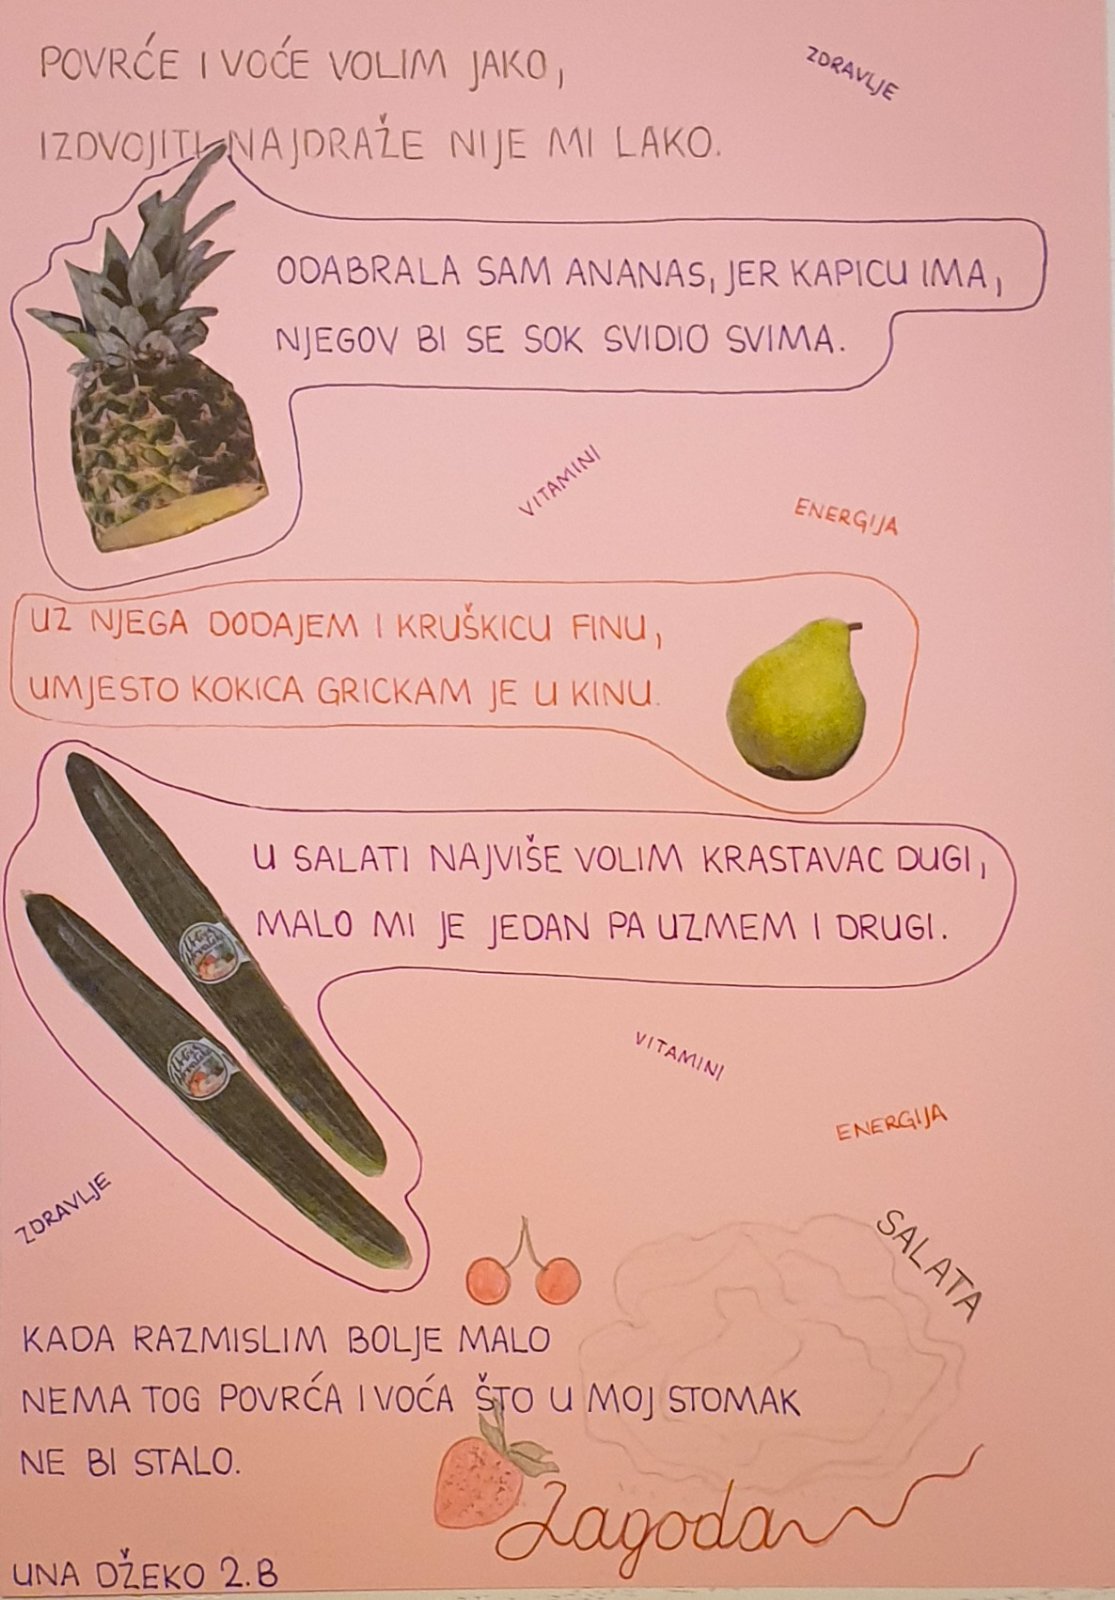 POVRĆE I VOĆE VOLIM JAKO,
ZDRAVLJE
IZDVOJITI NAJDRAŽE NIJE MI LAKO.
ODABRALA SAM ANANAS, JER KAPICU IMA,
NJEGOV BI SE SOK SVIDIO SVIMA.
VITAMINI
ENERGIJA
UZ NJEGA DODAJEM I KRUŠKICU FINU,
UMJESTO KOKICA GRICKAM JE U KINU.
U SALATI NAJVIŠE VOLIM KRASTAVAC DUGI,
MALO MI JE JEDAN PA UZMEM I DRUGI.
VITAMINI
ENERGIJA
ZDRAVLJE
SALATA
KADA RAZMISLIM BOLJE MALO
NEMA TOG POVRĆA I VOĆA ŠTO U MOJ STOMAK
NE BI STALO.
Jagoda
UNA DŽEKO 2.B